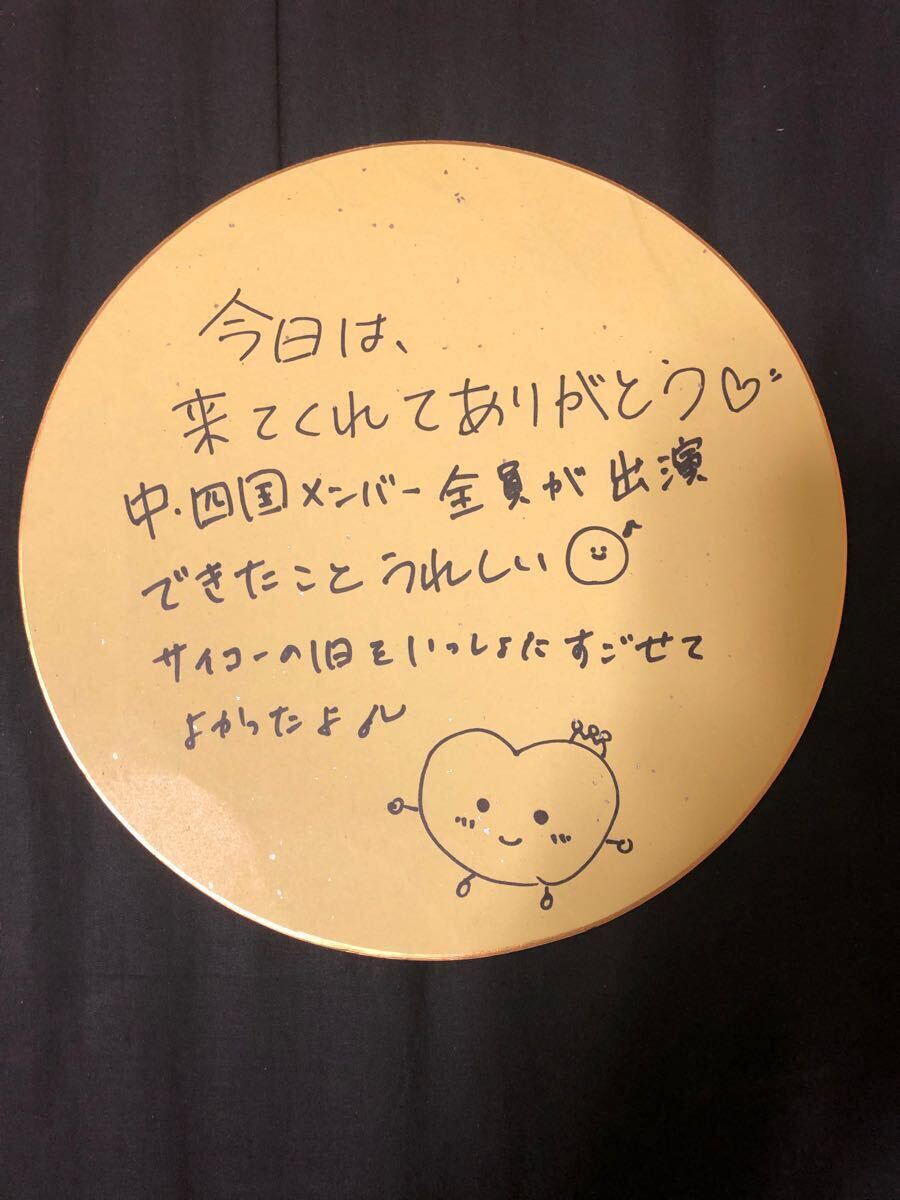 今日は、
来てくれてありがとう♡
中・四国メンバー全員が出演
できたことうれしい
サイコーの1日をいっしょにすごせて
よかったよ